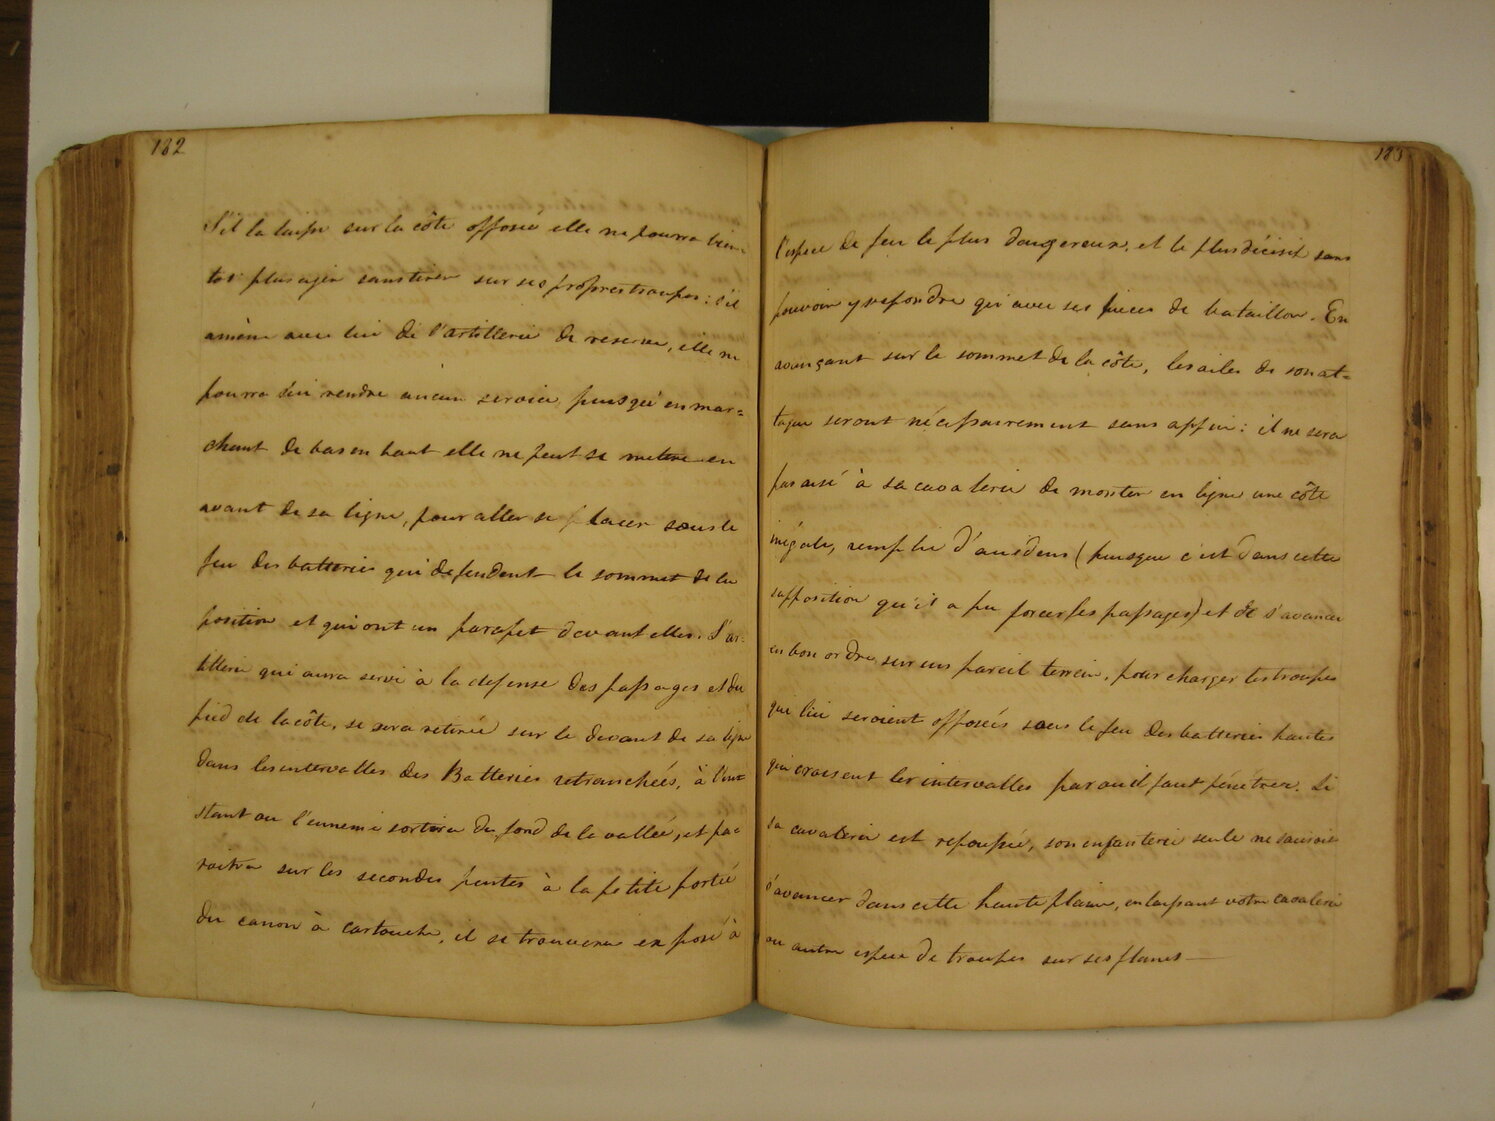 182
S'il la laisse sur la côte opposée elle ne pourra bien-
tot plus agir sans tirer sur ses propres troupes : s'il
amène avec lui de l'artillerie de reserve, elle ne
pourra lui rendre aucun service puisqu'en mar=
chant de bas en haut elle ne peut se mettre en
avant de sa ligne, pour aller se placer sous le
feu des batteries qui défendent le sommet de la
position et qui ont un parapet devant elles. L'ar-
tillerie qui aura servi à la defense des passages et du
pied de la côte, se sera retirée sur le devant de sa ligne
dans les intervalles des Batteries retranchées, à l'ins=
stant ou l'ennemi sortira du fond de la vallée, et pa=
roitra sur les secondes pentes à la petite portée
du canon à cartouche, il se trouvera exposé à
183
l'espece de feu le plus dangereux, et le plus décisif sans
pouvoir y repondre qu'avec ses pieces de bataillon. En
avançant sur le sommet de la côte, les ailes de son at=
taque seront nécessairement sans appui : il ne sera
pas aisé à sa cavalerie de monter en ligne une côte
inégale, remplie d'accidens (puisque c'est dans cette
supposition qu'il a pu forcer les passages) et de s'avancer
en bon ordre sur un pareil terrein, pour charger les troupes
qui lui seroient opposées sous le feu des batteries hautes
qui croisent les intervalles par ou il faut pénétrer. Si
sa cavalerie est repoussée, son infanterie seule ne sauroit
s'avancer dans cette haute plaine, en laissant votre cavalerie
ou autre espece de troupes sur ses flancs —